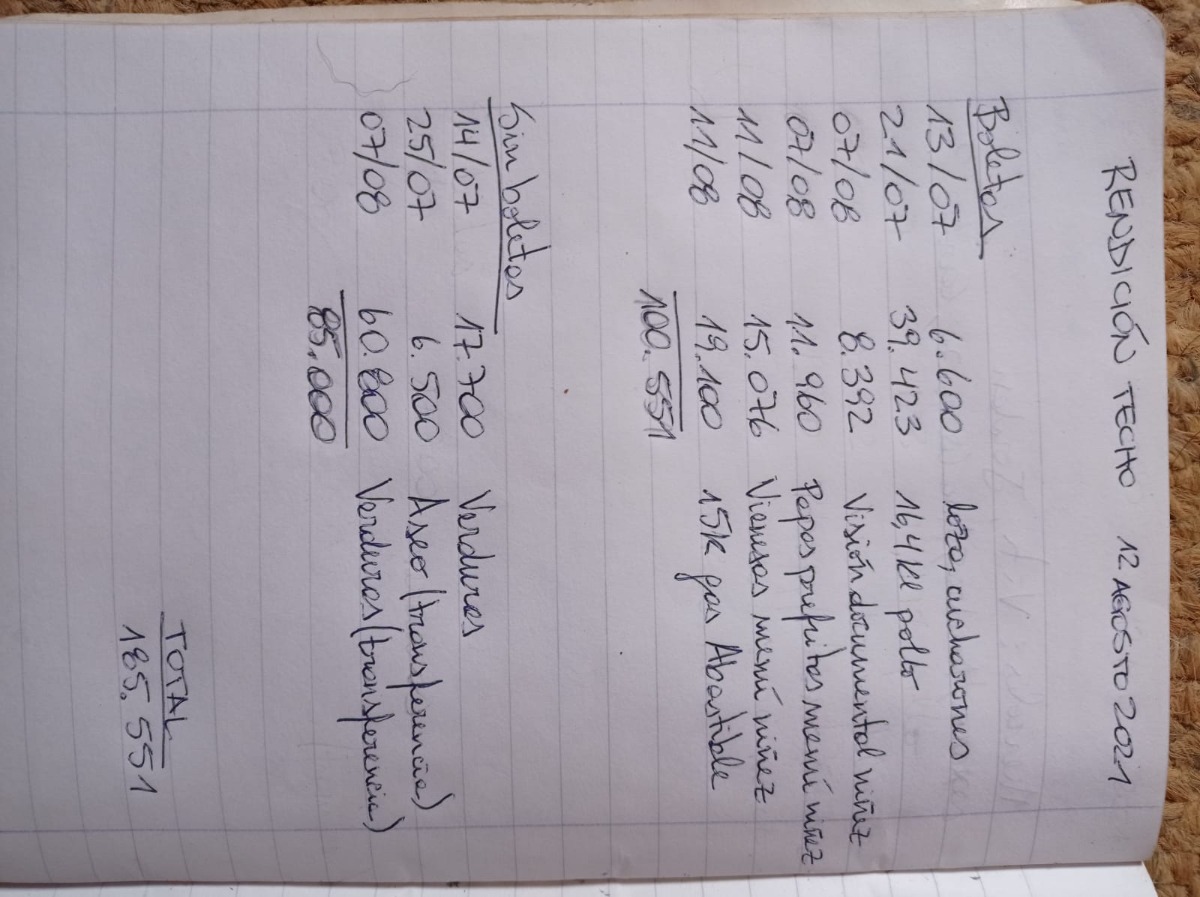 RENDICIÓN TECHO 12 AGOSTO 2021
Boletas
13/07 6.600 loza, cucharones
21/07 39.423 16,4kl pollo
07/08 8.392 Visión documental niñez
07/08 11.960 Papas prefritas menú niñez
11/08 15.076 Vienesas menú niñez
11/08 19.100 15k gas Abastible
100.551
Sin boletas
14/07 17.700 Verduras
25/07 6.500 Aseo (transferencia)
07/08 60.800 Verduras (transferencia)
85.000
TOTAL
185.551